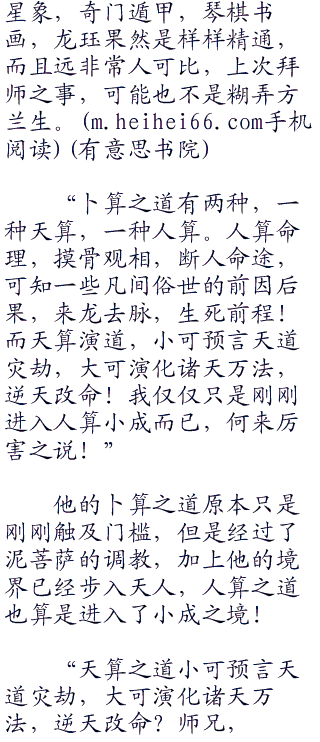 星象，奇门遁甲，琴棋书
画，龙珏果然是样样精通，
而且远非常人可比，上次拜
师之事，可能也不是糊弄方
兰生。(m.heihei66.com手机
阅读)(有意思书院)
“卜算之道有两种，一
种天算，一种人算。人算命
理，摸骨观相，断人命途，
可知一些凡间俗世的前因后
果，来龙去脉，生死前程！
而天算演道，小可预言天道
灾劫，大可演化诸天万法，
逆天改命！我仅仅只是刚刚
进入人算小成而已，何来厉
害之说！”
他的卜算之道原本只是
刚刚触及门槛，但是经过了
泥菩萨的调教，加上他的境
界已经步入天人，人算之道
也算是进入了小成之境！
“天算之道小可预言天
道灾劫，大可演化诸天万
法，逆天改命？师兄，